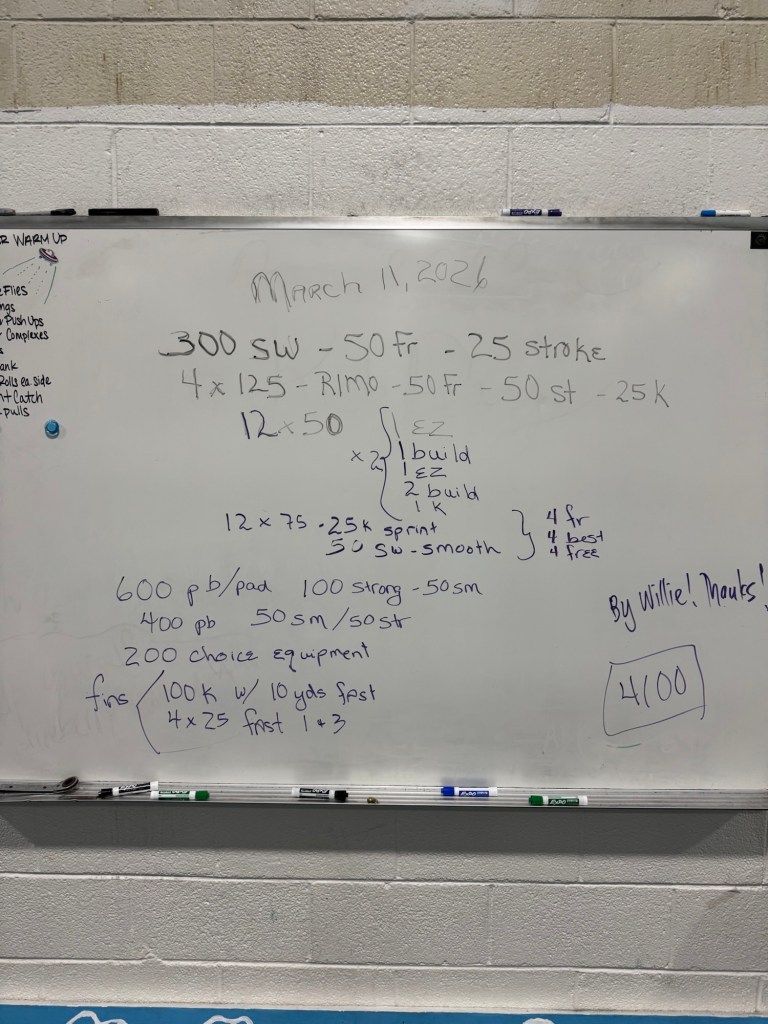 R WARM UP
Flies
ngs
Push Ups
Complexes
s
ank
Rolls ea. side
nt Catch
-pulls
MARCH 11, 2026
300 SW - 50 Fr - 25 stroke
4 x 125 - RIMO - 50 Fr - 50 st - 25 K
12 x 50
x 2
1 EZ
1 build
1 EZ
2 build
1 K
12 x 75 - 25K sprint
50 SW - smooth
4 fr
4 best
4 free
600 pb/pad 100 strong - 50 sm
400 pb 50 sm/50 str
200 choice equipment
fins
100 K w/ 10 yds fast
4 x 25 fast 1 + 3
By Willie! Thanks!
4100
EXPO